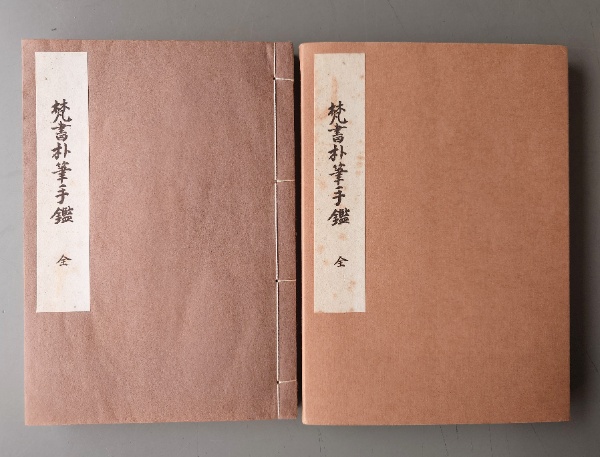 梵書朴筆手鑑
全
梵書朴筆手鑑
全